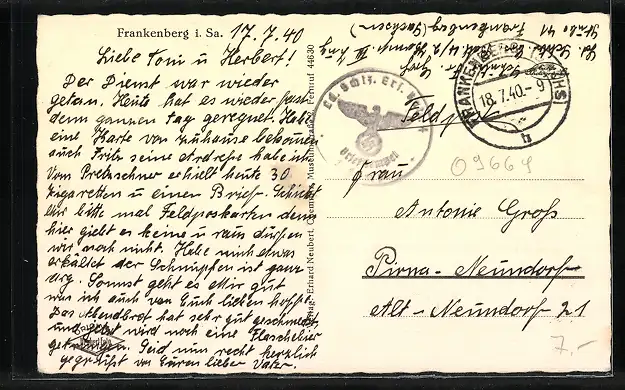 Frankenberg i. Sa. 17.7.40
Liebe Toni u Herbert!
Der Dienst war wieder
getan. Heute hat es wieder fast
denn ganzen Tag geregnet. Habe
eine Karte von zuhause bekommen
auch Fritz seine Ardrese habe ich
Vom Pretzschner erhielt heute 30
Zigaretten u einen Brief. Schickt
Mir bitte mal Feldpostkarten denn
hier giebt es keine u raus dürfen
wir noch nicht. Habe mich etwas
erkältet der Schnupfen ist ganz
arg. Sonnst geht es Mir gut
was ich auch von Euch lieben hoffe.
Das Abendbrot hat sehr gut geschmeckt,
und jetzt wird noch eine Flasche Bier
getrunken. Seid nun recht herzlich
gegrüßt von Euren lieber Vater.
Verlag: Erhard Neubert, Chemnitz, Fernruf 44630
Frankenberg (Sachsen)
Feldpost
FRANKENBERG (SACHS)
18.7.40.-9
b
Briefstempel
09669
Frau
Antonie Groß
Pirna-Neundorf
Alt-Neundorf 21
7.-